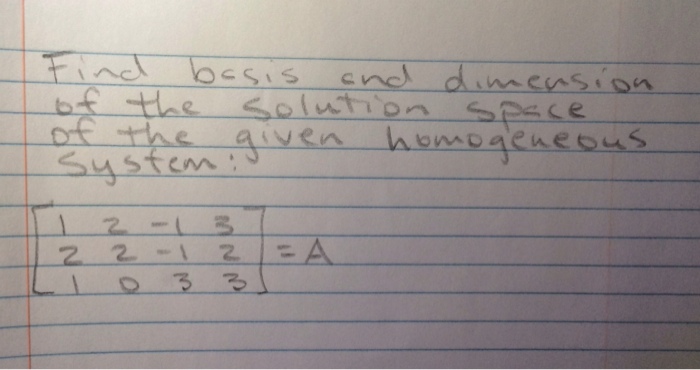 Find basis and dimension
of the solution space
of the given homogeneous
system:
1 2 -1 3
2 2 -1 2 = A
1 0 3 3